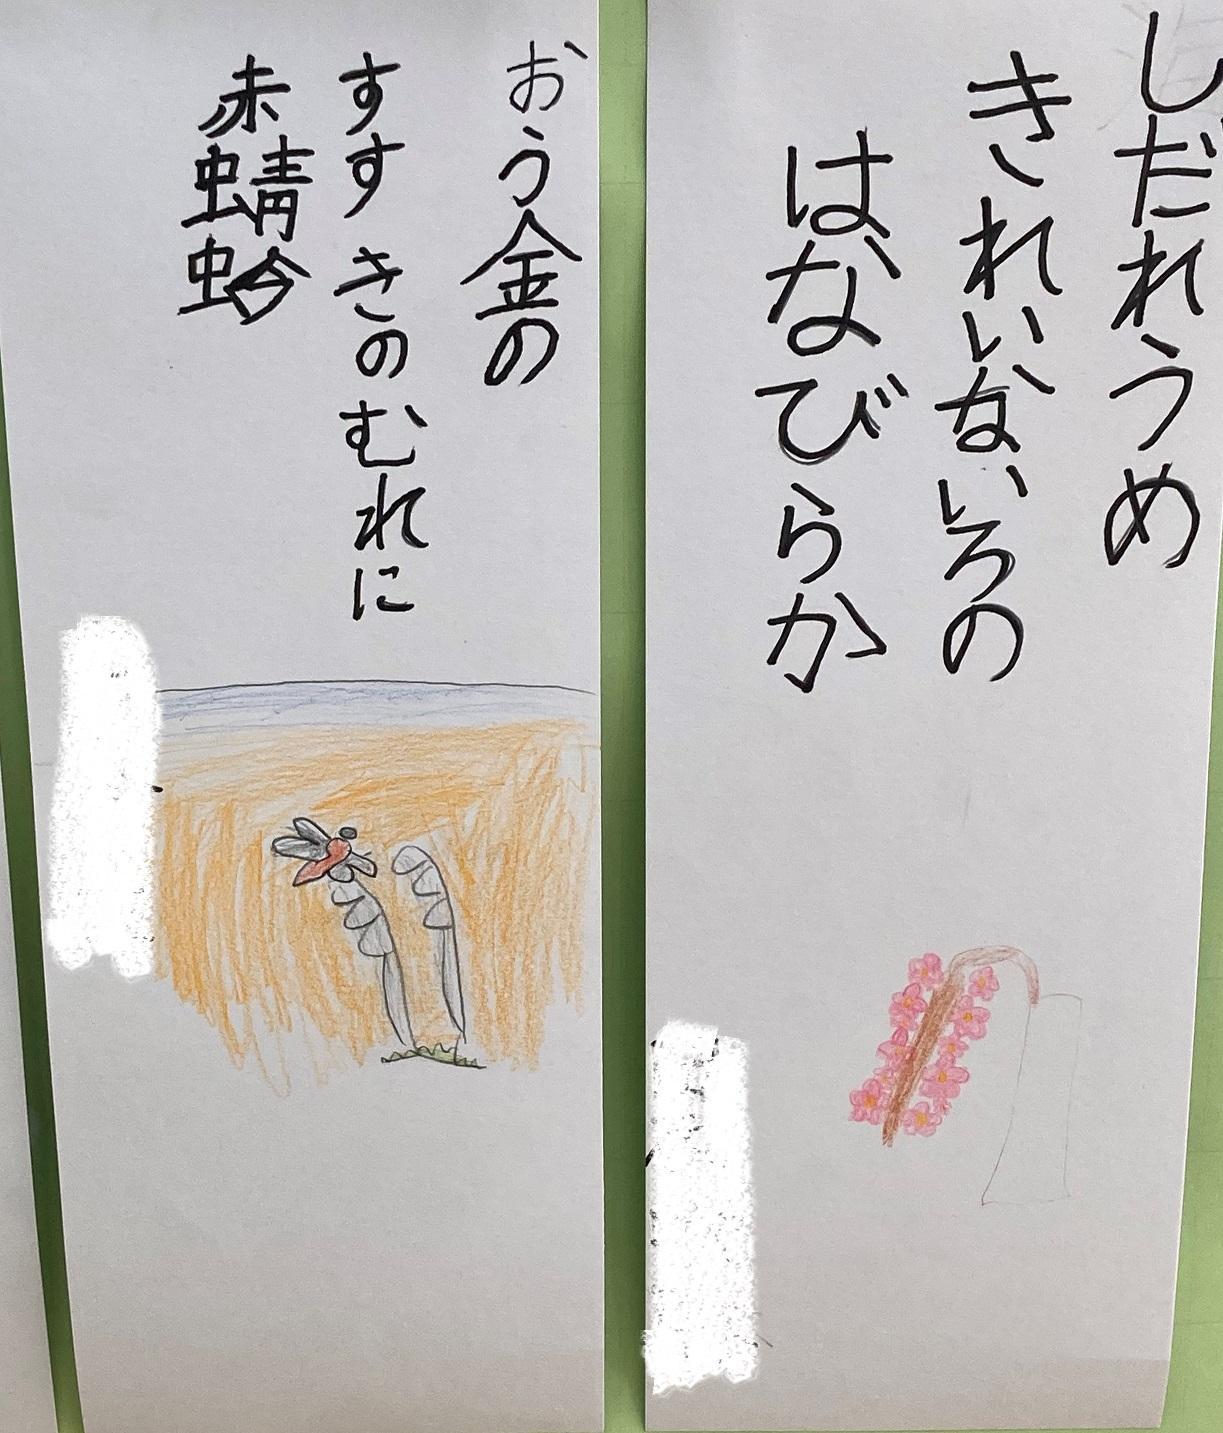 しだれうめ
きれいないろの
はなびらか
おう金の
すすきのむれに
赤蜻蛉